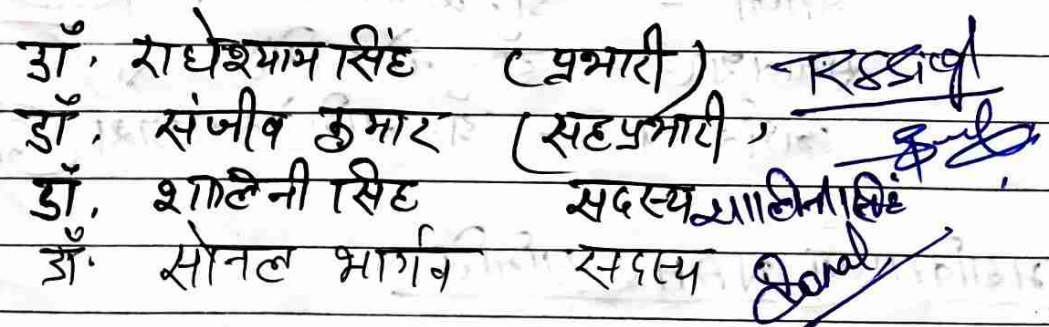 डॉ. राधेश्याम सिंह (प्रभारी)
डॉ. संजीव कुमार (सहप्रभारी,
डॉ. शालिनी सिंह सदस्य शालिनी सिंह
डॉ. सोनल भार्गव सदस्य Sonal